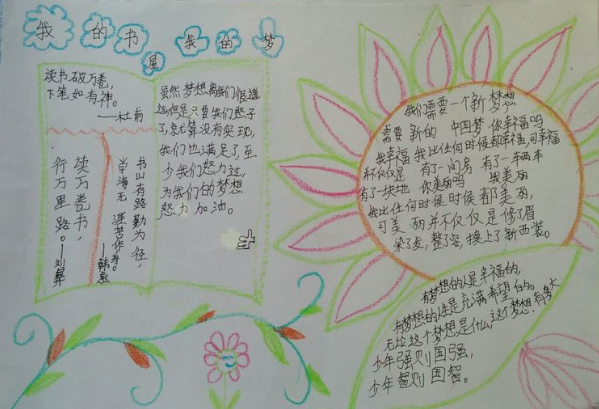 我的书屋我的梦
读书破万卷，
下笔如有神。
——杜甫
读万卷书，
行万里路。——刘彝
书山有路勤为径，
学海无涯苦作舟。
——韩愈
虽然梦想离我们很遥
远，但是只要我们努力
了，就算没有实现，
我们也满足了，至
少我们努力过，
为我们的梦想
努力加油。
我们需要一个新梦想
需要新的 中国梦 你幸福吗
我幸福 我比任何时候都幸福，可幸福
不仅仅是 有了一间房 有了一本两本
有了一块地 你美丽吗 我美丽
我比任何时候时候都美丽，
可美丽并不仅仅是修了眉
染了发，整了容，换上了新西装。
有梦想的人是幸福的，
有梦想的 是充满希望的。
无论这个梦想是什么，这个梦想有多大
少年强则国强，
少年智则国智。